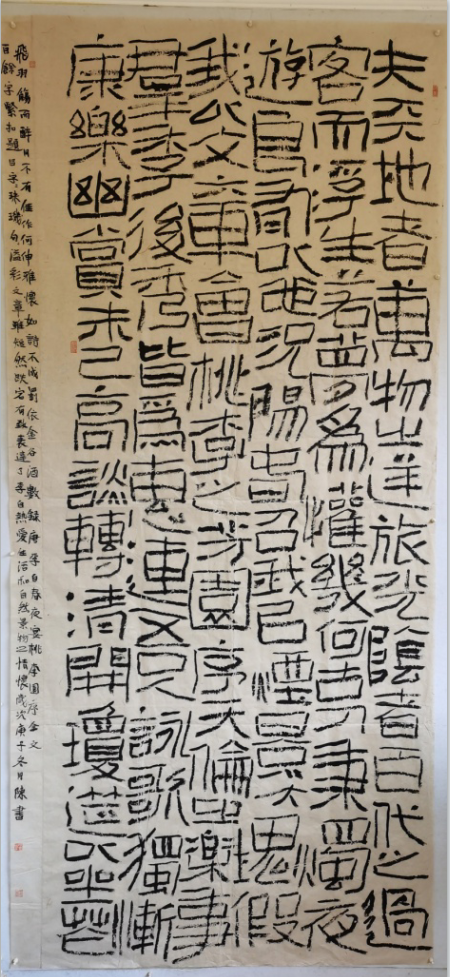 夫天地者萬物之逆旅光陰者百代之過
客而浮生若夢為懽幾何古人秉燭夜
遊良有以也況陽春召我以煙景大塊假
我以文章會桃李之芳園序天倫之樂事
群季俊秀皆為惠連吾人詠歌獨慚
康樂幽賞未已高談轉清開瓊筵以坐花
飛羽觴而醉月不有佳作何伸雅懷如詩不成罰依金谷酒數錄唐李白春夜宴桃李園序全文
百餘字緊扣題目字珠璣句溢彩文章雖短然跌宕有致表達了李白熱愛生活和自然景物之情懷歲次庚子冬月陳書